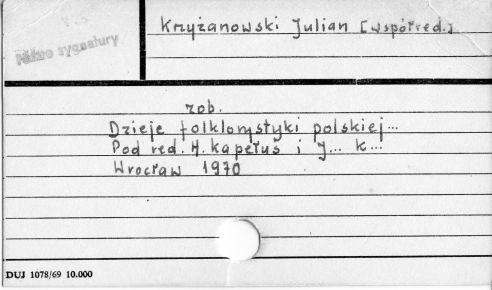 Krzyżanowski Julian [współred.]
sygnatury
zob.
Dzieje folklorystyki polskiej...
Pod red. H. Kapełuś i J... K...
Wrocław 1970
DUJ 1078/69 10.000